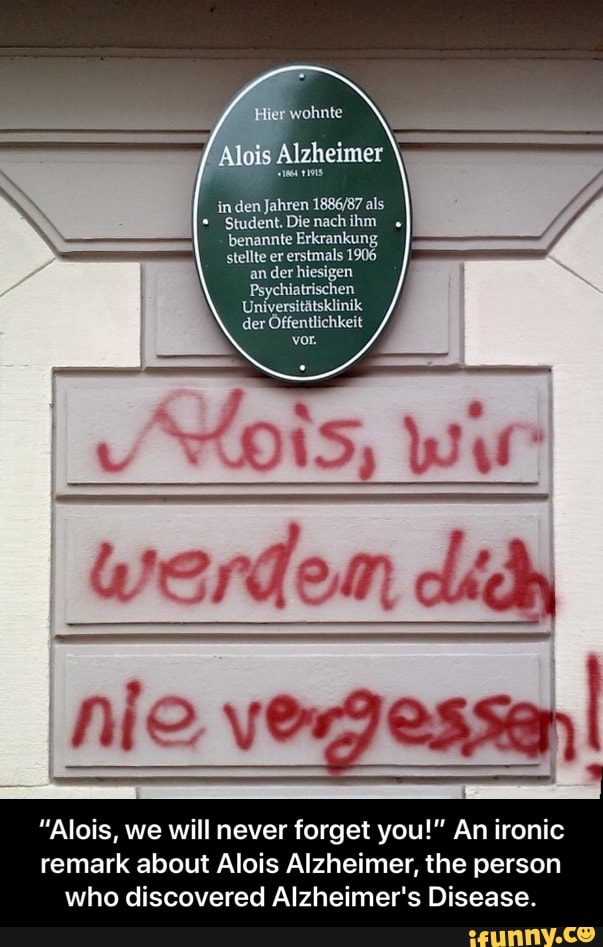 Hier wohnte
Alois Alzheimer
*1864 †1915
in den Jahren 1886/87 als
Student. Die nach ihm
benannte Erkrankung
stellte er erstmals 1906
an der hiesigen
Psychiatrischen
Universitätsklinik
der Öffentlichkeit
vor.
Alois, wir
werden dich
nie vergessen!
"Alois, we will never forget you!" An ironic
remark about Alois Alzheimer, the person
who discovered Alzheimer's Disease.
ifunny.co